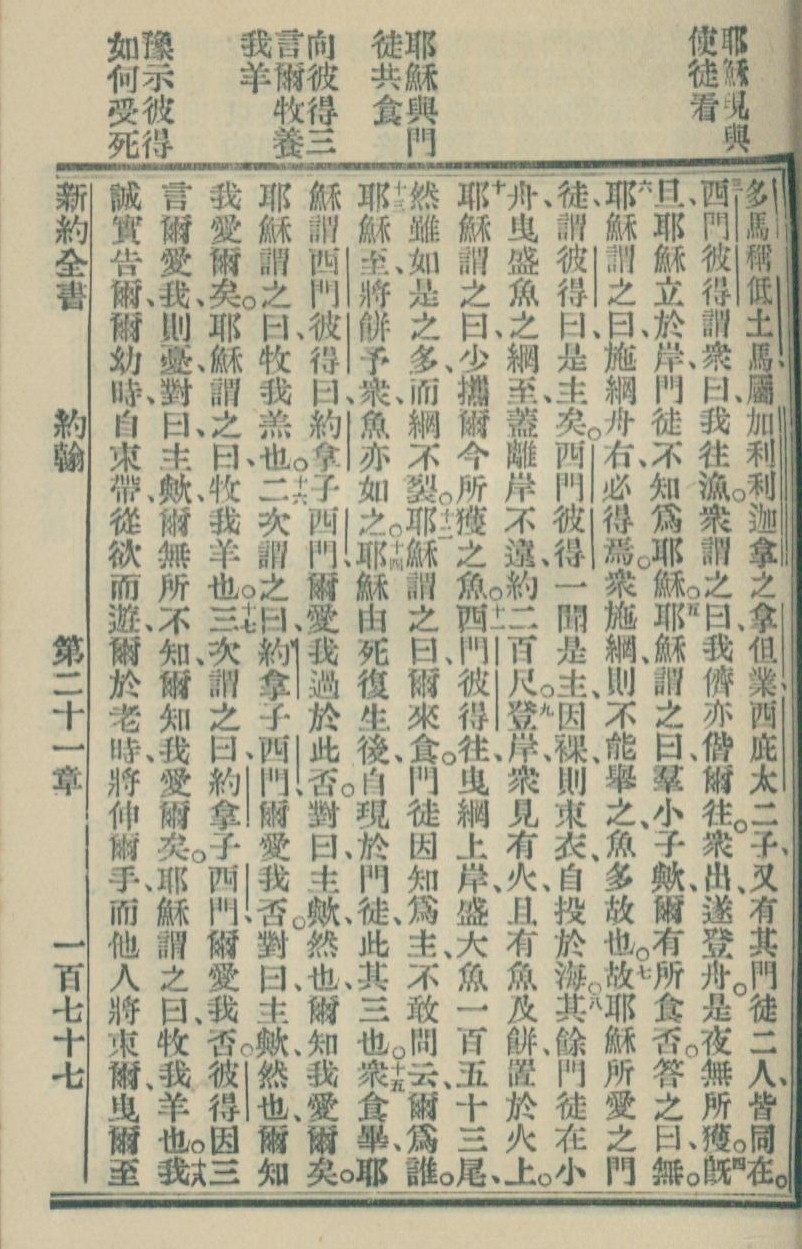 耶穌現與
使徒看
耶穌與門
徒共食
向彼得三
言爾牧養
我羊
豫示彼得
如何受死
多馬稱低土馬、屬加利利迦拿之拿但業、西庇太二子、又有其門徒二人、皆同在。
三西門彼得謂衆曰、我往漁。衆謂之曰、我儕亦偕爾往。衆出、遂登舟。是夜無所獲。四旣
旦、耶穌立於岸、門徒不知爲耶穌。五耶穌謂之曰、羣小子歟、爾有所食否。答之曰、無。
六耶穌謂之曰、施網舟右、必得焉。衆施網、則不能舉之、魚多故也。七故耶穌所愛之門
徒、謂彼得曰、是主矣。西門彼得一聞是主、因裸、則束衣、自投於海。八其餘門徒在小
舟、曳盛魚之網至、蓋離岸不遠、約二百尺。九登岸、衆見有火、且有魚及餅、置於火上。
十耶穌謂之曰、少攜爾今所獲之魚。十一西門彼得往、曳網上岸、盛大魚一百五十三尾、
然雖如是之多、而網不裂。十二耶穌謂之曰、爾來食。門徒因知爲主、不敢問云、爾爲誰。
十三耶穌至、將餅予衆、魚亦如之。十四耶穌由死復生後、自現於門徒、此其三也。十五衆食畢、耶
穌謂西門彼得曰、約拿子西門、爾愛我過於此否。對曰、主歟、然也、爾知我愛爾矣。
耶穌謂之曰、牧我羔也。十六二次謂之曰、約拿子西門、爾愛我否。對曰、主歟、然也、爾知
我愛爾矣。耶穌謂之曰、牧我羊也。十七三次謂之曰、約拿子西門、爾愛我否。彼得因三
言爾愛我、則憂、對曰、主歟、爾無所不知、爾知我愛爾矣。耶穌謂之曰、牧我羊也。十八我
誠實告爾、爾幼時、自束帶、從欲而遊、爾於老時、將伸爾手、而他人將束爾、曳爾至
新約全書 約翰 第二十一章 一百七十七